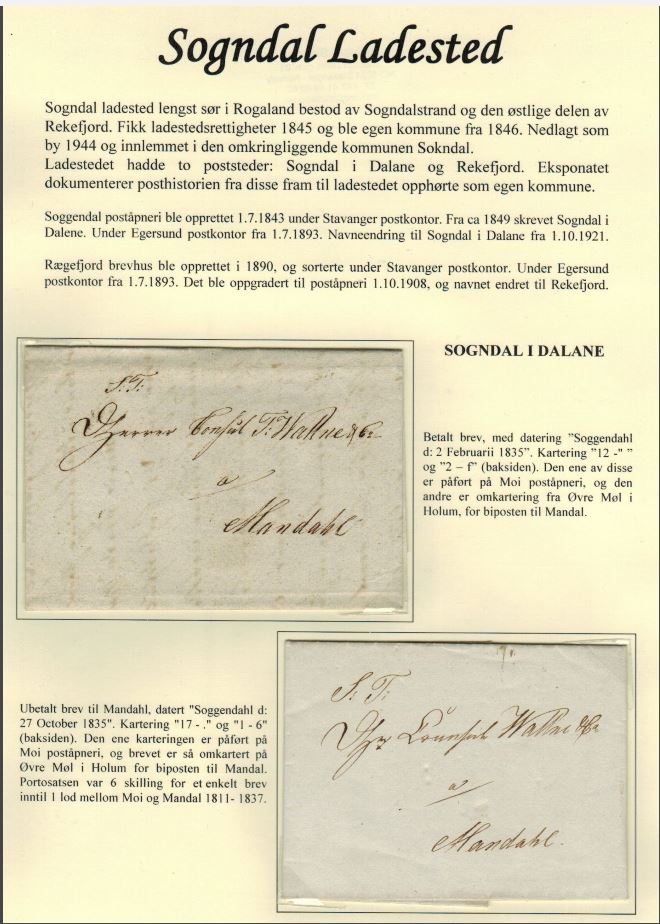 Sogndal Ladested
Sogndal ladested lengst sør i Rogaland bestod av Sogndalstrand og den østlige delen av
Rekefjord. Fikk ladestedsrettigheter 1845 og ble egen kommune fra 1846. Nedlagt som
by 1944 og innlemmet i den omkringliggende kommunen Sokndal.
Ladestedet hadde to poststeder: Sogndal i Dalane og Rekefjord. Eksponatet
dokumenterer posthistorien fra disse fram til ladestedet opphørte som egen kommune.
Soggendal poståpneri ble opprettet 1.7.1843 under Stavanger postkontor. Fra ca 1849 skrevet Sogndal i
Dalene. Under Egersund postkontor fra 1.7.1893. Navneendring til Sogndal i Dalane fra 1.10.1921.
Rægefjord brevhus ble opprettet i 1890, og sorterte under Stavanger postkontor. Under Egersund
postkontor fra 1.7.1893. Det ble oppgradert til poståpneri 1.10.1908, og navnet endret til Rekefjord.
SOGNDAL I DALANE
S: T:
Herrer Consul T: Wattne & Co
a
Mandahl
Betalt brev, med datering "Soggendahl
d: 2 Februarii 1835". Kartering "12 -" "
og "2 – f" (baksiden). Den ene av disse
er påført på Moi poståpneri, og den
andre er omkartering fra Øvre Møl i
Holum, for biposten til Mandal.
Ubetalt brev til Mandahl, datert "Soggendahl d:
27 October 1835". Kartering "17 - ." og "1 - 6"
(baksiden). Den ene karteringen er påført på
Moi poståpneri, og brevet er så omkartert på
Øvre Møl i Holum for biposten til Mandal.
Portosatsen var 6 skilling for et enkelt brev
inntil 1 lod mellom Moi og Mandal 1811- 1837.
S: T:
Hr Counsul Wattne & Co
a
Mandahl.